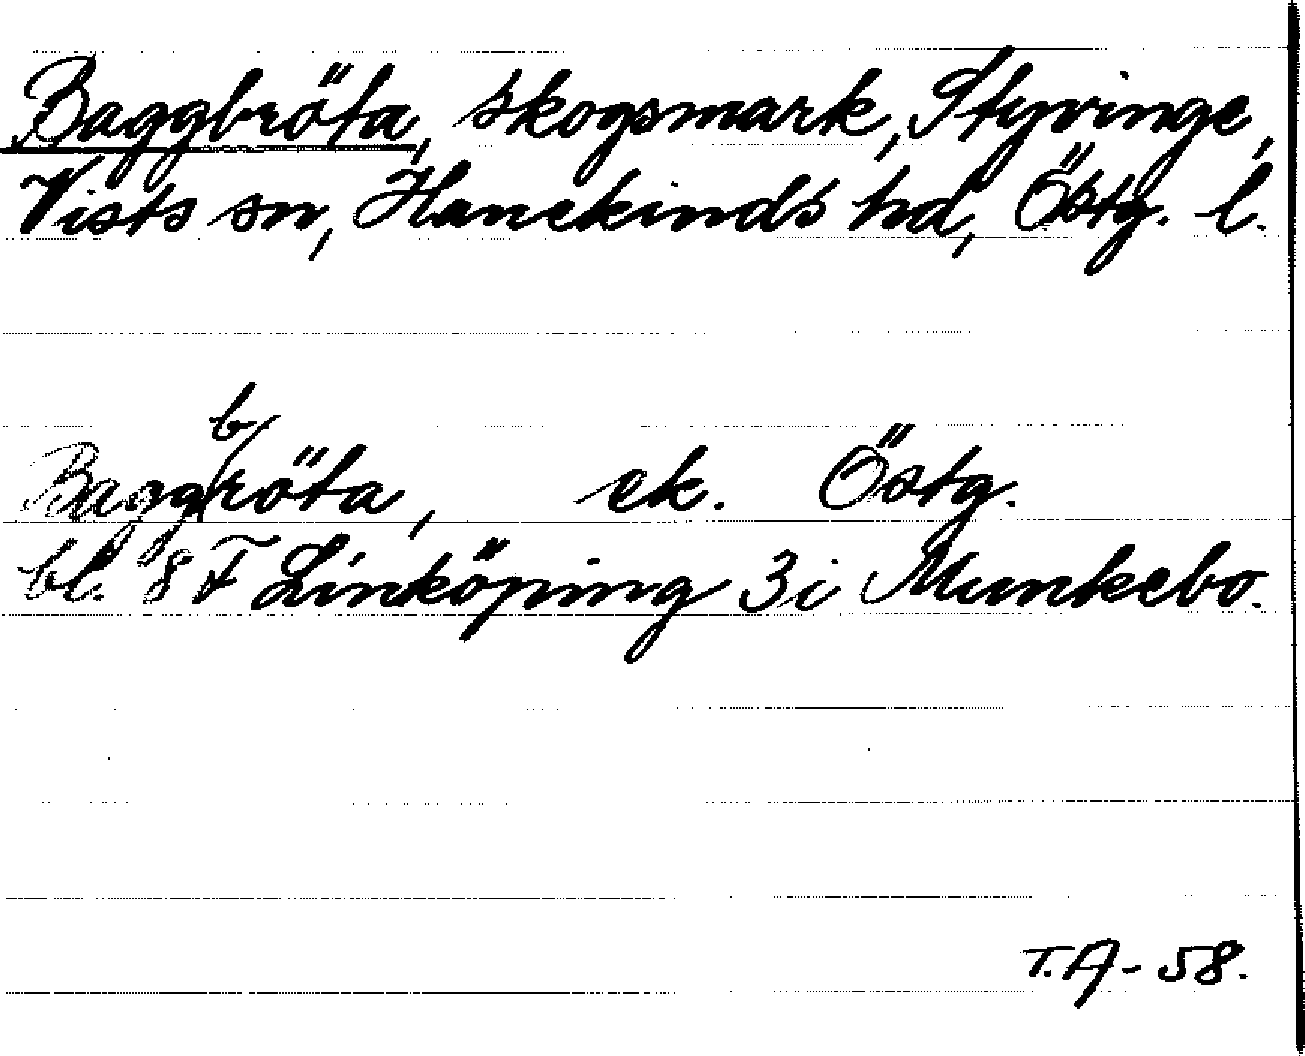 Baggbröta, skogsmark, Styvinge,
Vists sn, Hanekinds hd, Östg. l.
Baggbröta, ek. Östg.
bl. 8 F Linköping 3i Munkebo.
T.A-58.